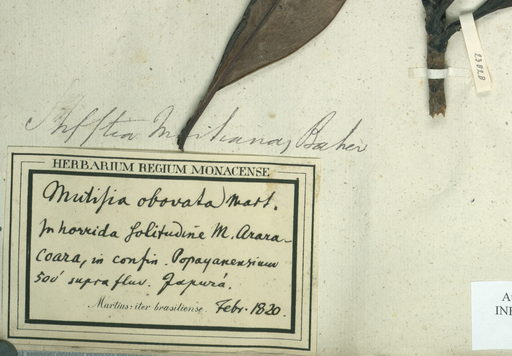 Stifftia Martiana, Baker
HERBARIUM REGIUM MONACENSE
Mutisia obovata Mart.
In horrida Solitudine M. Arara-
coara, in confin. Popayanensium
500' supra fluv. Japurá.
Martius: iter brasiliense. Febr. 1820.